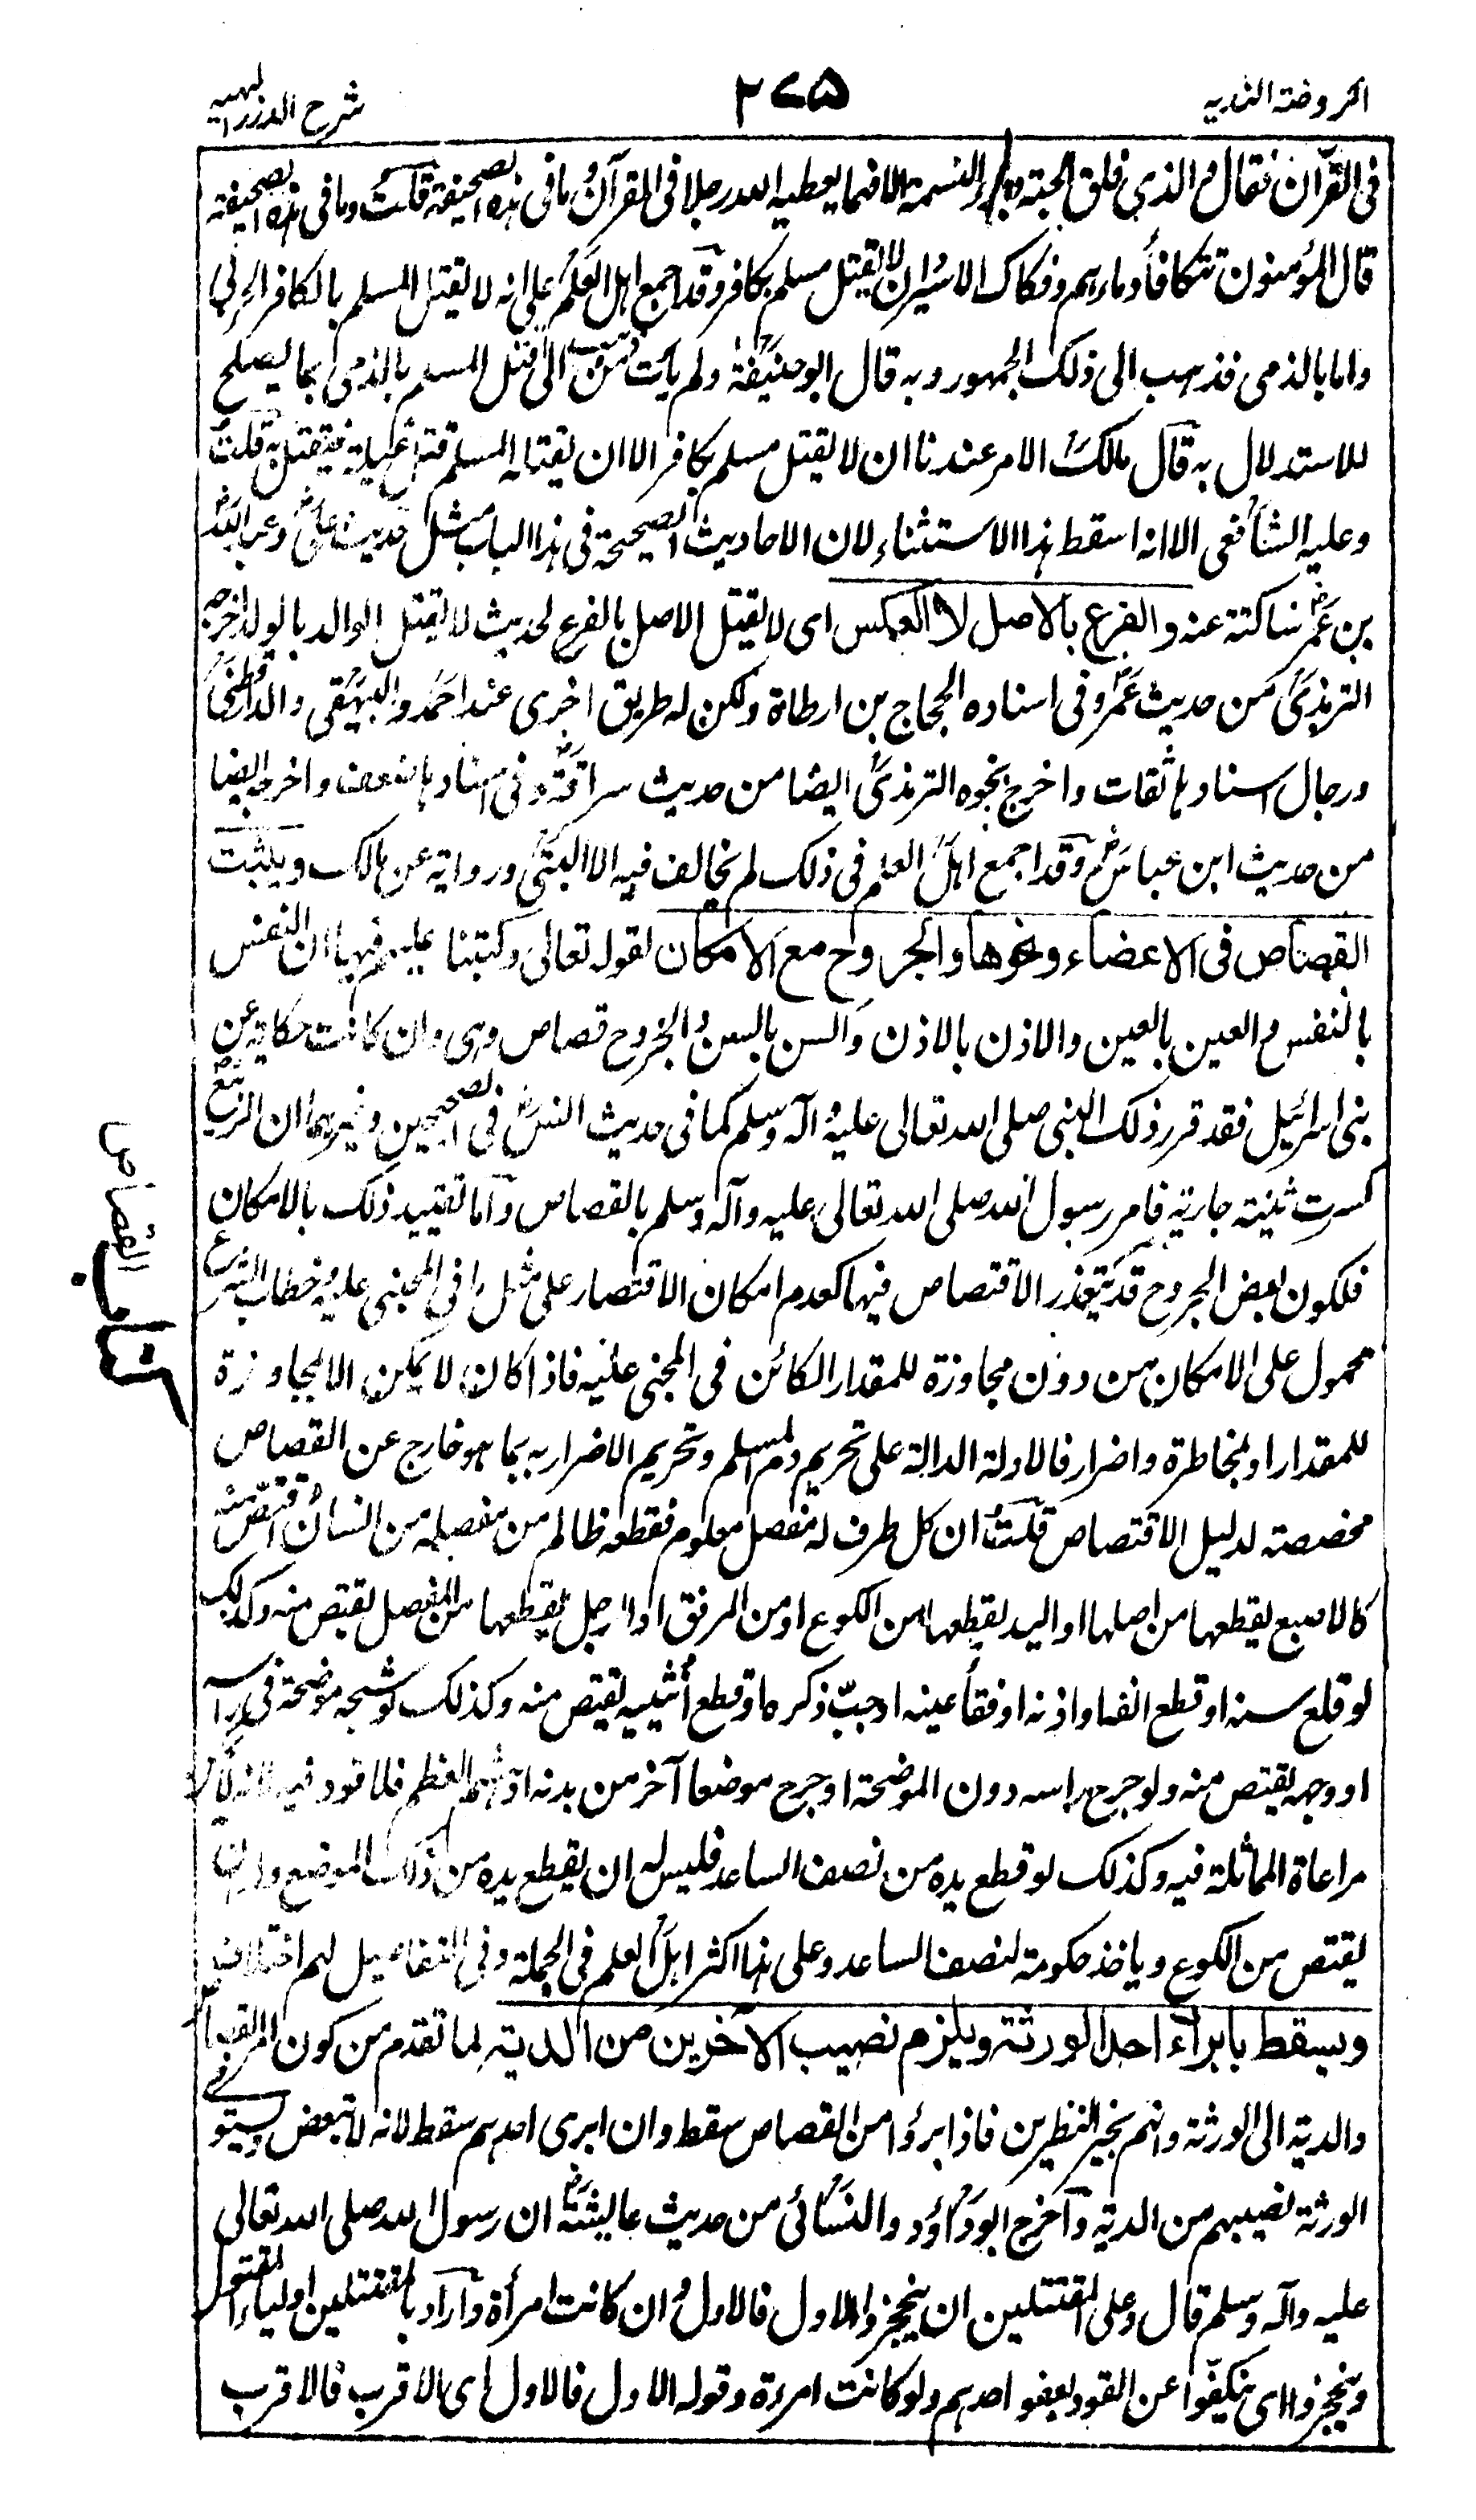 الروضة الندية
٢٧٥
شرح الدرر البهية
فى القرآن فقال و الذي فلق الحبة وبرأ النسمة الا فهما يعطيه الله رجلا فى القرآن وما فى هذه الصحيفة قلت وما فى هذه الصحيفة
قال المؤمنون تتكافأ دماءهم وفكاك الاسير وان لا يقتل مسلم بكافر وقد اجمع اهل العلم على انه لا يقتل المسلم بالكافر الحربى
واما بالذمى فذهب الى ذلك الجمهور وبه قال ابو حنيفة ولم يأت من ذهب الى قتل المسلم بالذمى بما يصلح
للاستدلال به قال مالك الامر عندنا ان لا يقتل مسلم بكافر الا ان يقتله المسلم قتل غيلة فيقتل به قلت
وعليه الشافعى الا انه اسقط هذا الاستثناء لان الاحاديث الصحيحة فى هذا الباب مثل حديث على وعبد الله
بن عمر ساكتة عنه والفرع بالاصل لا العكس اى لا يقتل الاصل بالفرع لحديث لا يقتل الوالد بالولد اخرجه
الترمذى من حديث عمر وفى اسناده الحجاج بن ارطاة ولكن له طريق اخرى عند احمد والبيهقى والدارقطنى
ورجال اسنادها ثقات واخرج نحوه الترمذى ايضا من حديث سراقة وفى اسنادها ضعف واخرجه ايضا
من حديث ابن عباس وقد اجمع اهل العلم فى ذلك لم يخالف فيه الا البتى ورواية عن مالك ويثبت
القصاص فى الاعضاء ونحوها والجروح مع الامكان لقوله تعالى وكتبنا عليهم فيها ان النفس
بالنفس والعين بالعين والاذن بالاذن والسن بالسن والجروح قصاص وهى وان كانت حكاية عن
بنى اسرائيل فقد قرر ذلك النبى صلى الله تعالى عليه وآله وسلم كما فى حديث انس فى الصحيحين وغيرهما ان الربيع
كسرت ثنية جارية فامر رسول الله صلى الله تعالى عليه وآله وسلم بالقصاص واما تقييد ذلك بالامكان
فلكون بعض الجروح قد يتعذر الاقتصاص فيها كعدم امكان الاقتصار على مثل ما فى المجنى عليه وخطاب الشرع
محمول على الامكان من دون مجاوزة للمقدار الكائن فى المجنى عليه فاذا كان لا يمكن الا بمجاوزة
للمقدار او بمخاطرة واضرار فالادلة الدالة على تحريم دم المسلم وتحريم الاضرار به بما هو خارج عن القصاص
مخصصة لدليل الاقتصاص قلت ان كل طرف له مفصل معلوم فقطعه ظالم من مفصله من انسان اقتص منه
كالاصبع يقطعها من اصلها او اليد يقطعها من الكوع او من المرفق او الرجل يقطعها من المفصل يقتص منه وكذلك
لو قلع سنه او قطع انفه او اذنه او فقأ عينه او جبّ ذكره او قطع أنثييه يقتص منه وكذلك لو شجه موضحة فى رأسه
او وجهه يقتص منه ولو جرح رأسه دون الموضحة او جرح موضعا آخر من بدنه او هشم العظم فلا قود فيه لانه لا يمكن
مراعاة المماثلة فيه وكذلك لو قطع يده من نصف الساعد فليس له ان يقطع يده من ذلك الموضع وله ان
يقتص من الكوع وياخذ حكومة لنصف الساعد وعلى هذا اكثر اهل العلم فى الجملة وفى التفاصيل لهم اختلاف
ويسقط بابراء احد الورثة ويلزم نصيب الآخرين من الدية لما تقدم من كون امر القصاص
والدية الى الورثة وانهم بخير النظرين فاذا ابرؤا من القصاص سقط وان ابرى احدهم سقط لانه لا يتبعض ويستوفى
الورثة نصيبهم من الدية وأخرج ابو داؤد والنسائى من حديث عايشة ان رسول الله صلى الله تعالى
عليه وآله وسلم قال وعلى المقتتلين ان ينحجزوا الاول فالاول وان كانت امرأة وأراد بالمقتتلين اولياء المقتول
وينحجزوا اى ينكفّوا عن القود بعفو احدهم ولو كانت امرءة وقوله الاول فالاول اى الاقرب فالاقرب
كتاب القصاص